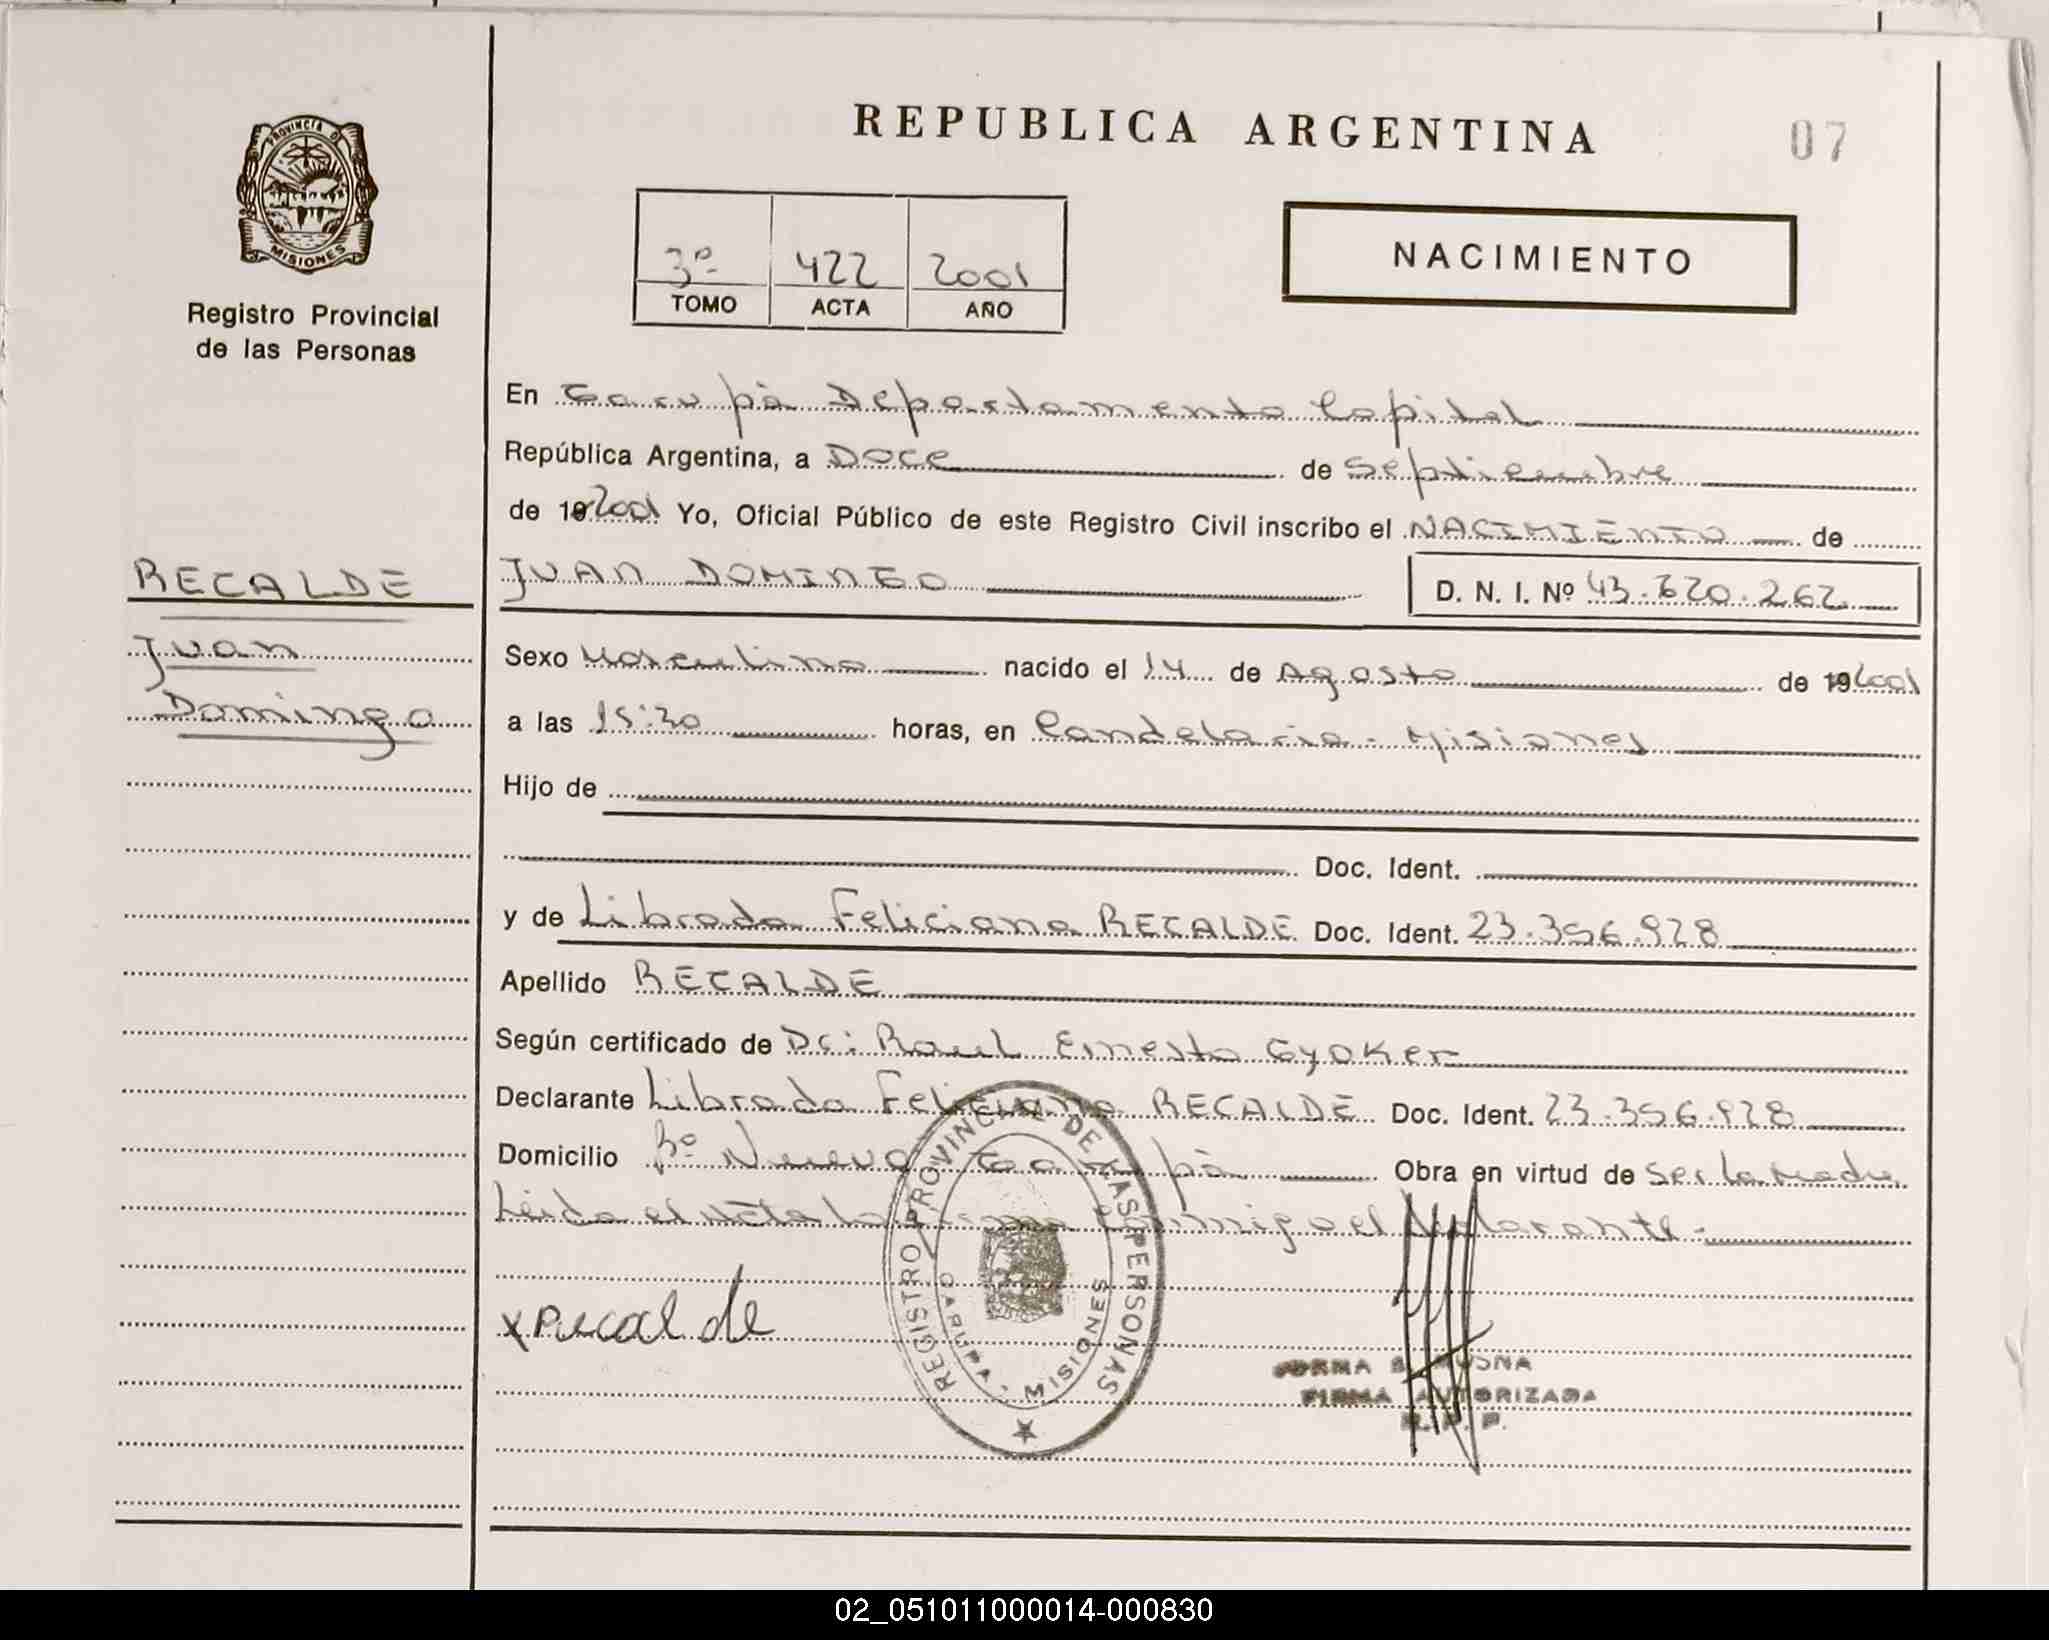 REPUBLICA ARGENTINA
07
PROVINCIA DE
MISIONES
Registro Provincial
de las Personas
3º 422 2001
TOMO ACTA AÑO
NACIMIENTO
En Garupá Departamento Capital
República Argentina, a Doce de Septiembre
de 19 2001 Yo, Oficial Público de este Registro Civil inscribo el NACIMIENTO de
RECALDE
Juan
Domingo
JUAN DOMINGO D. N. I. Nº 43.620.262
Sexo Masculino nacido el 14 de Agosto de 19 2001
a las 15:20 horas, en Candelaria - Misiones
Hijo de
Doc. Ident.
y de Librada Feliciana RECALDE Doc. Ident. 23.356.928
Apellido RECALDE
Según certificado de Dr: Raul Ernesto Gyoker
Declarante Librada Feliciana RECALDE Doc. Ident. 23.356.928
Domicilio Bº Nuevo Garupá Obra en virtud de ser la Madre
Leida el acta la firma conmigo el declarante.-
x Recalde
REGISTRO PROVINCIAL DE LAS PERSONAS
GARUPA - MISIONES
FIRMA AUTORIZADA
R. P. P.
02_051011000014-000830